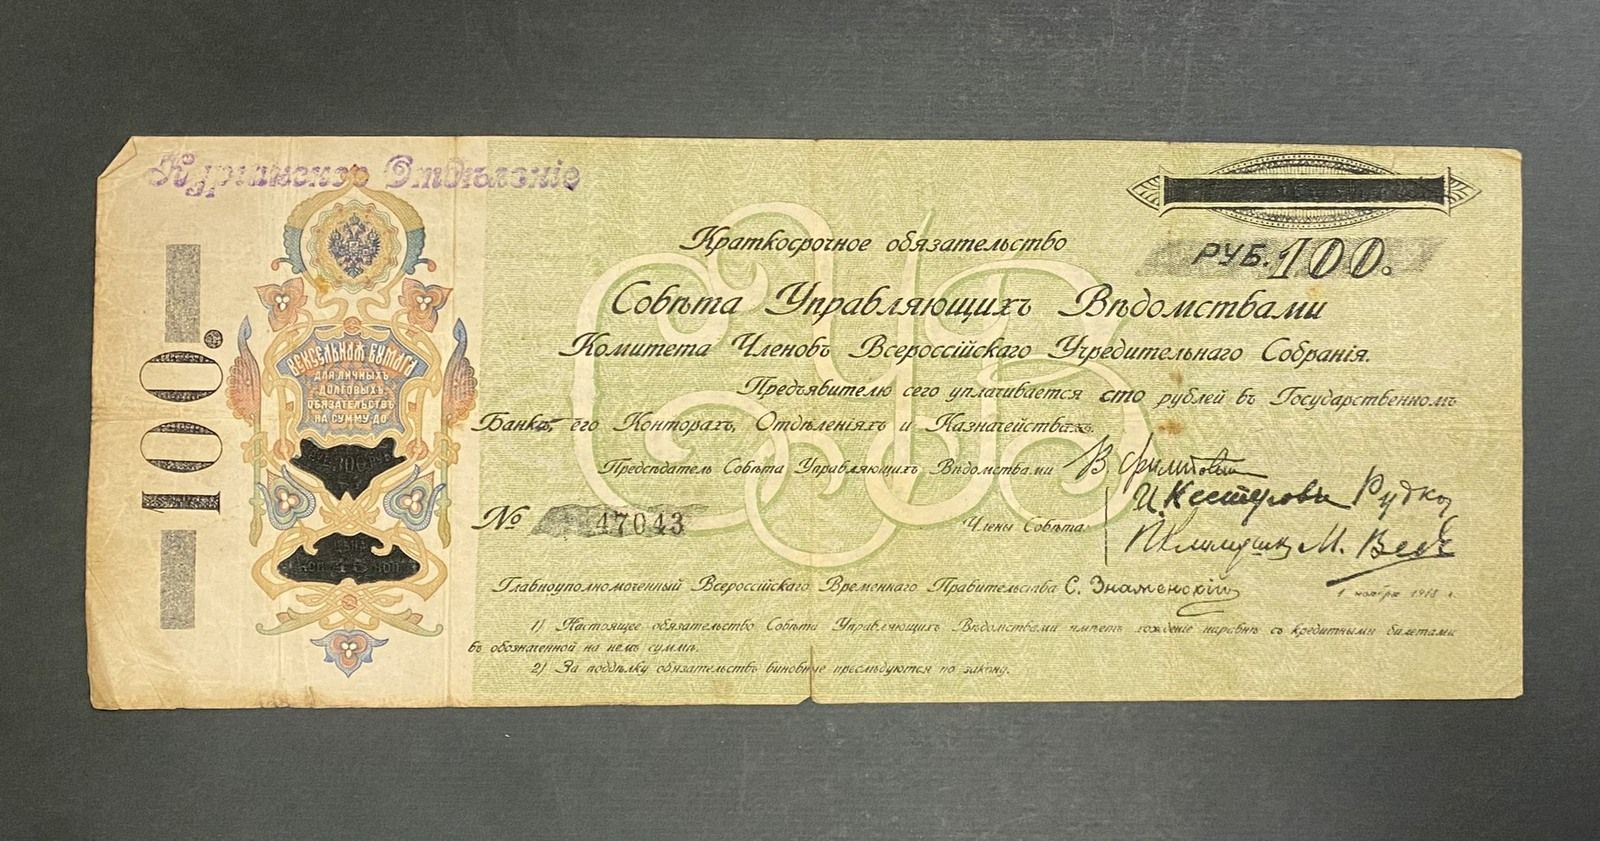 Курганское Отдѣленіе
Краткосрочное обязательство
РУБ. 100.
Совѣта Управляющихъ Вѣдомствами
Комитета Членовъ Всероссійскаго Учредительнаго Собранія.
Предъявителю сего уплачивается сто рублей въ Государственномъ
Банкѣ, его Конторахъ, Отдѣленіяхъ и Казначействахъ.
Предсѣдатель Совѣта Управляющихъ Вѣдомствами
№ 47043
Члены Совѣта:
Главноуполномоченный Всероссійскаго Временнаго Правительства С. Знаменскій
1 ноября 1918 г.
1) Настоящее обязательство Совѣта Управляющихъ Вѣдомствами имѣетъ хожденіе наравнѣ съ кредитными билетами
въ обозначенной на немъ суммѣ.
2) За поддѣлку обязательствъ виновные преслѣдуются по закону.
100.
ВЕКСЕЛЬНАЯ БУМАГА
ДЛЯ ЛИЧНЫХЪ
ДОЛГОВЫХЪ
ОБЯЗАТЕЛЬСТВЪ
НА СУММУ ДО